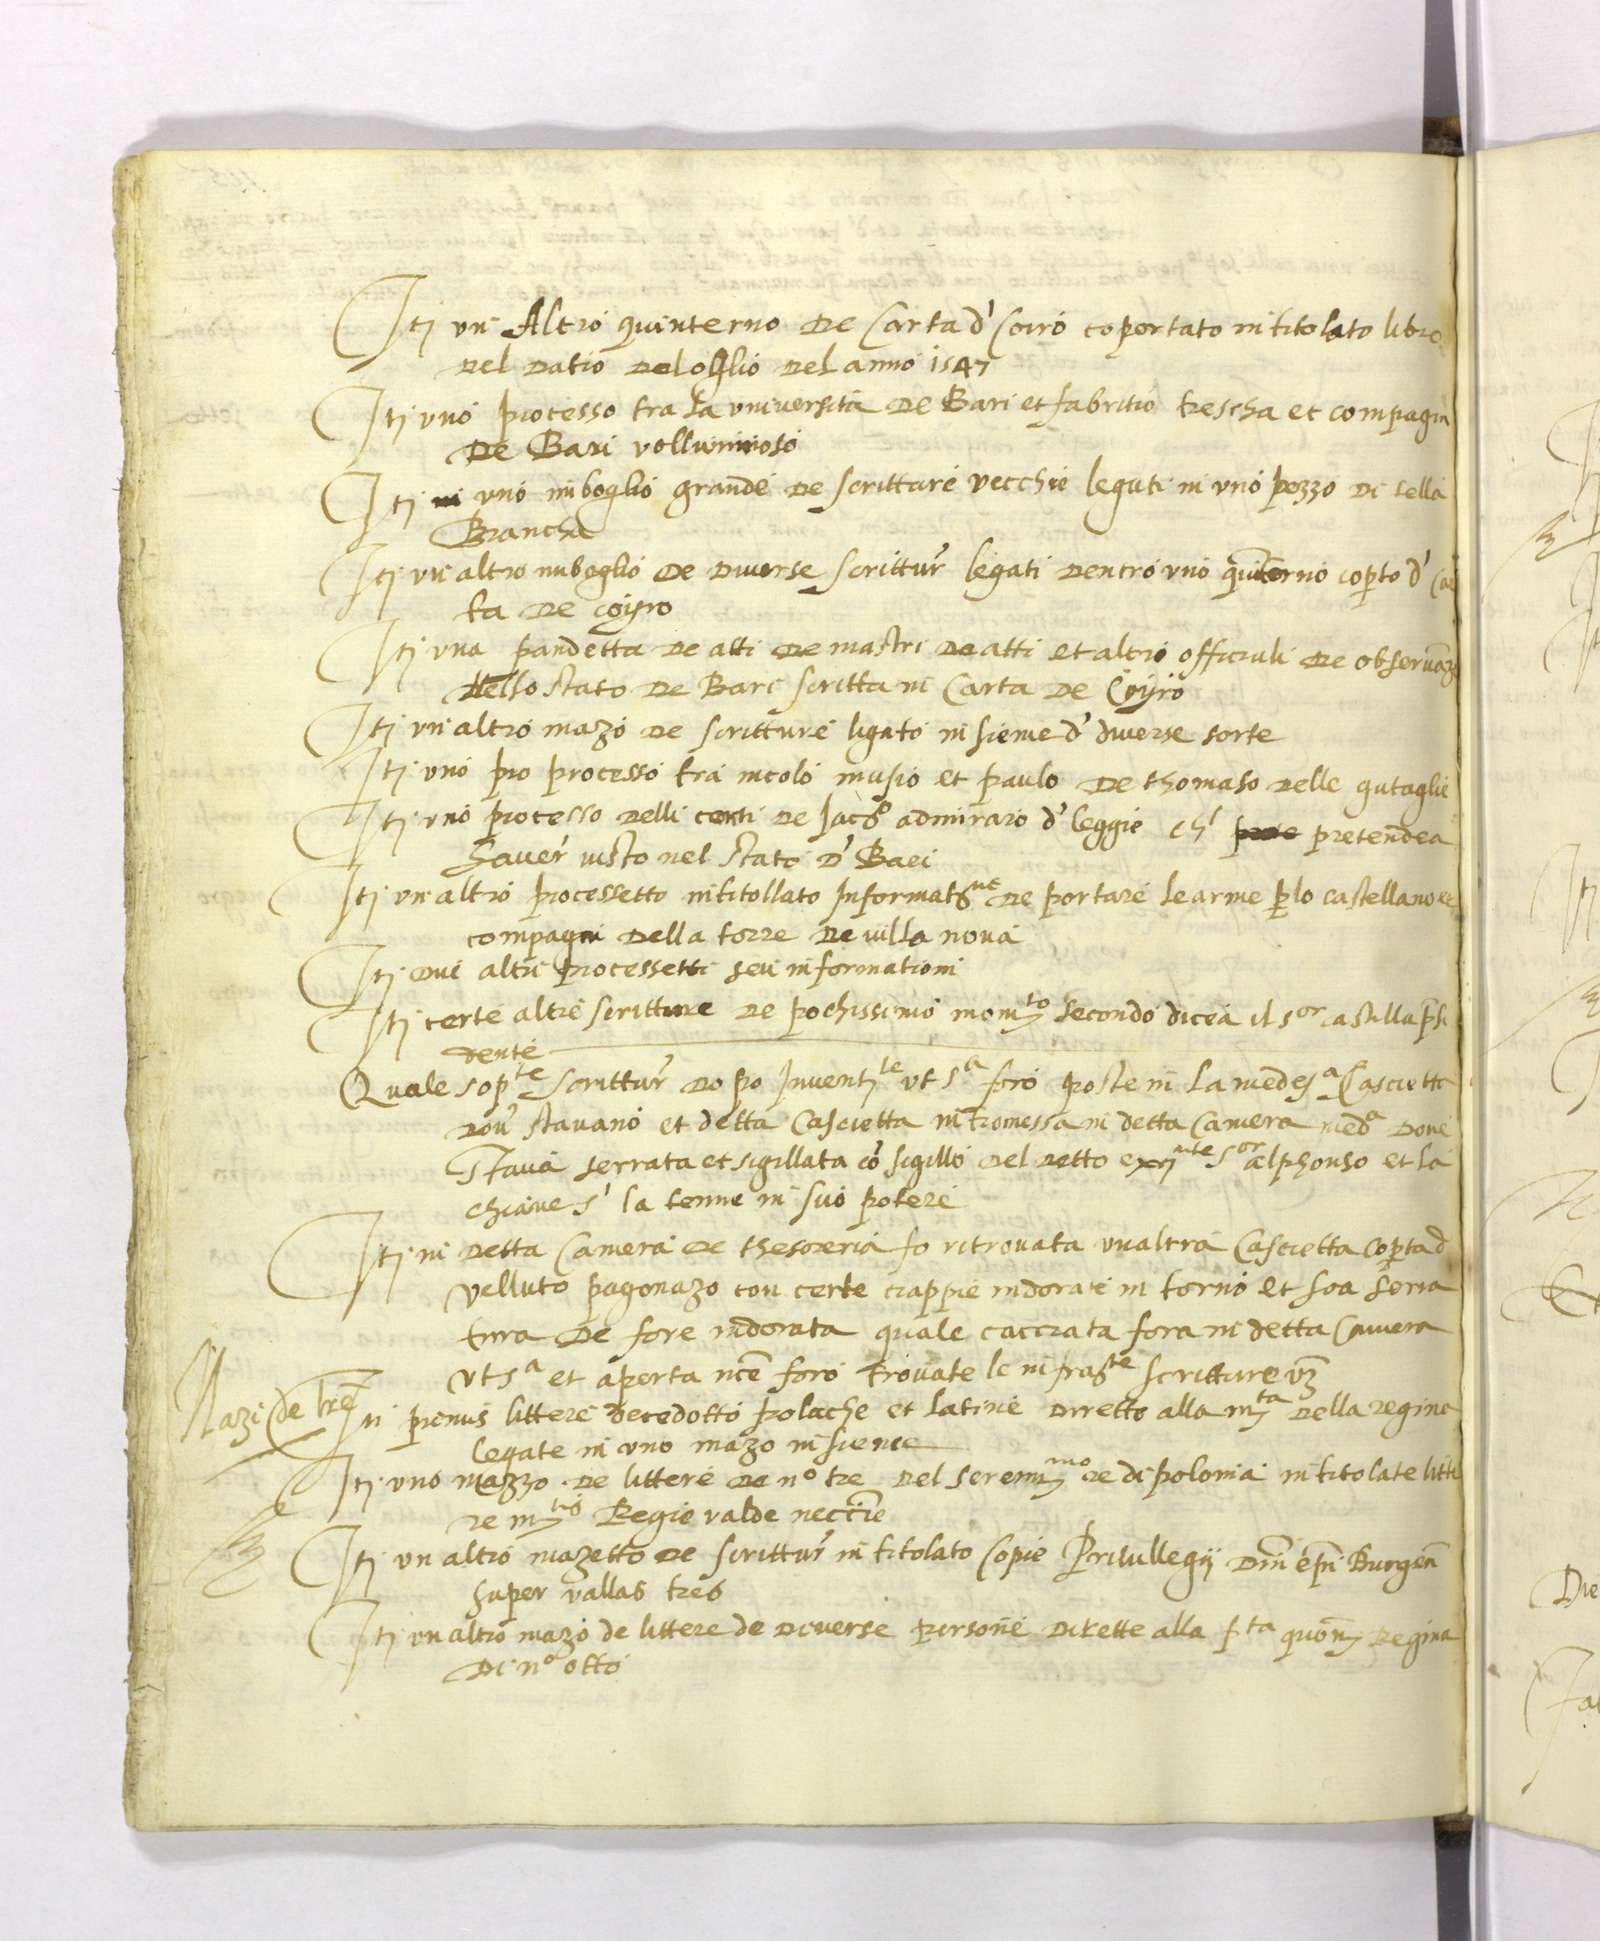 Itj un Altro quinterno de Carta d' Coiro coportato intitolato libro
del datio del oglio del anno 1547
Itj uno processo tra la università de Bari et fabritio frescha et compagni
de Bari volluminoso
Itj uno imboglio grande de scritture vecchie legati in uno pezzo di tella
Biancha
Itj un altro imboglio de diverse scrittur' legati dentro uno quinterno coperto d' Car
ta de coyro
Itj una pandetta de atti de mastri de atti et altro officiali de observanza
dello stato de Bari scritta in Carta de Coyro
Itj un altro mazo de scritture ligato insieme d' diverse sorte
Itj uno pro processo tra nicolo musio et paulo de thomaso delle gutaglie
Itj uno processo delli conti de Jaco admiraro d' leggie ch' pretendea
haver visto nel stato d' Bari
Itj un altro processetto intitollato Informat.ne de portare le arme p lo castellano et
compagni della torre de villa nova
Itj dui altri processetti seu informationi
Itj certe altre scritture de pochissimo mom.to secondo dicea il s.or castilla presi
dente
Quale sop.te scrittur' dopo Invent.te ut s.a foro poste in la medes.a Cascietta
dov' stavano et detta Cascietta intromessa in detta Camera med.a dove
stava serrata et sigillata co sigillo del detto ex.nte s.or alphonso et la
chiave s' la tenne in suo potere
Itj in detta Camera de thesoreria fo ritrovata un altra Cascietta coperta d
velluto pagonazo con certe ciappie indorate in torno et soa serra
tura de fore indorata quale cacciata fora in detta Camera
ut s.a et aperta nce foro trovate le infras.te scritture vz
Mazi de tre In primis littere decedotto polache et latine dirette alla m.ta della regina
legate in uno mazo insieme
Itj uno mazzo de littere de n.o tre del seren.mo re di polonia intitolate litte
re m.tis Regie valde necrie
Itj un altro mazetto de scrittur' intitolato Copie Privullegij Dni epi Burgen
super vallas tres
Itj un altro mazo de littere de diverse persone dirette alla s.ta quon Regina
di n.o otto